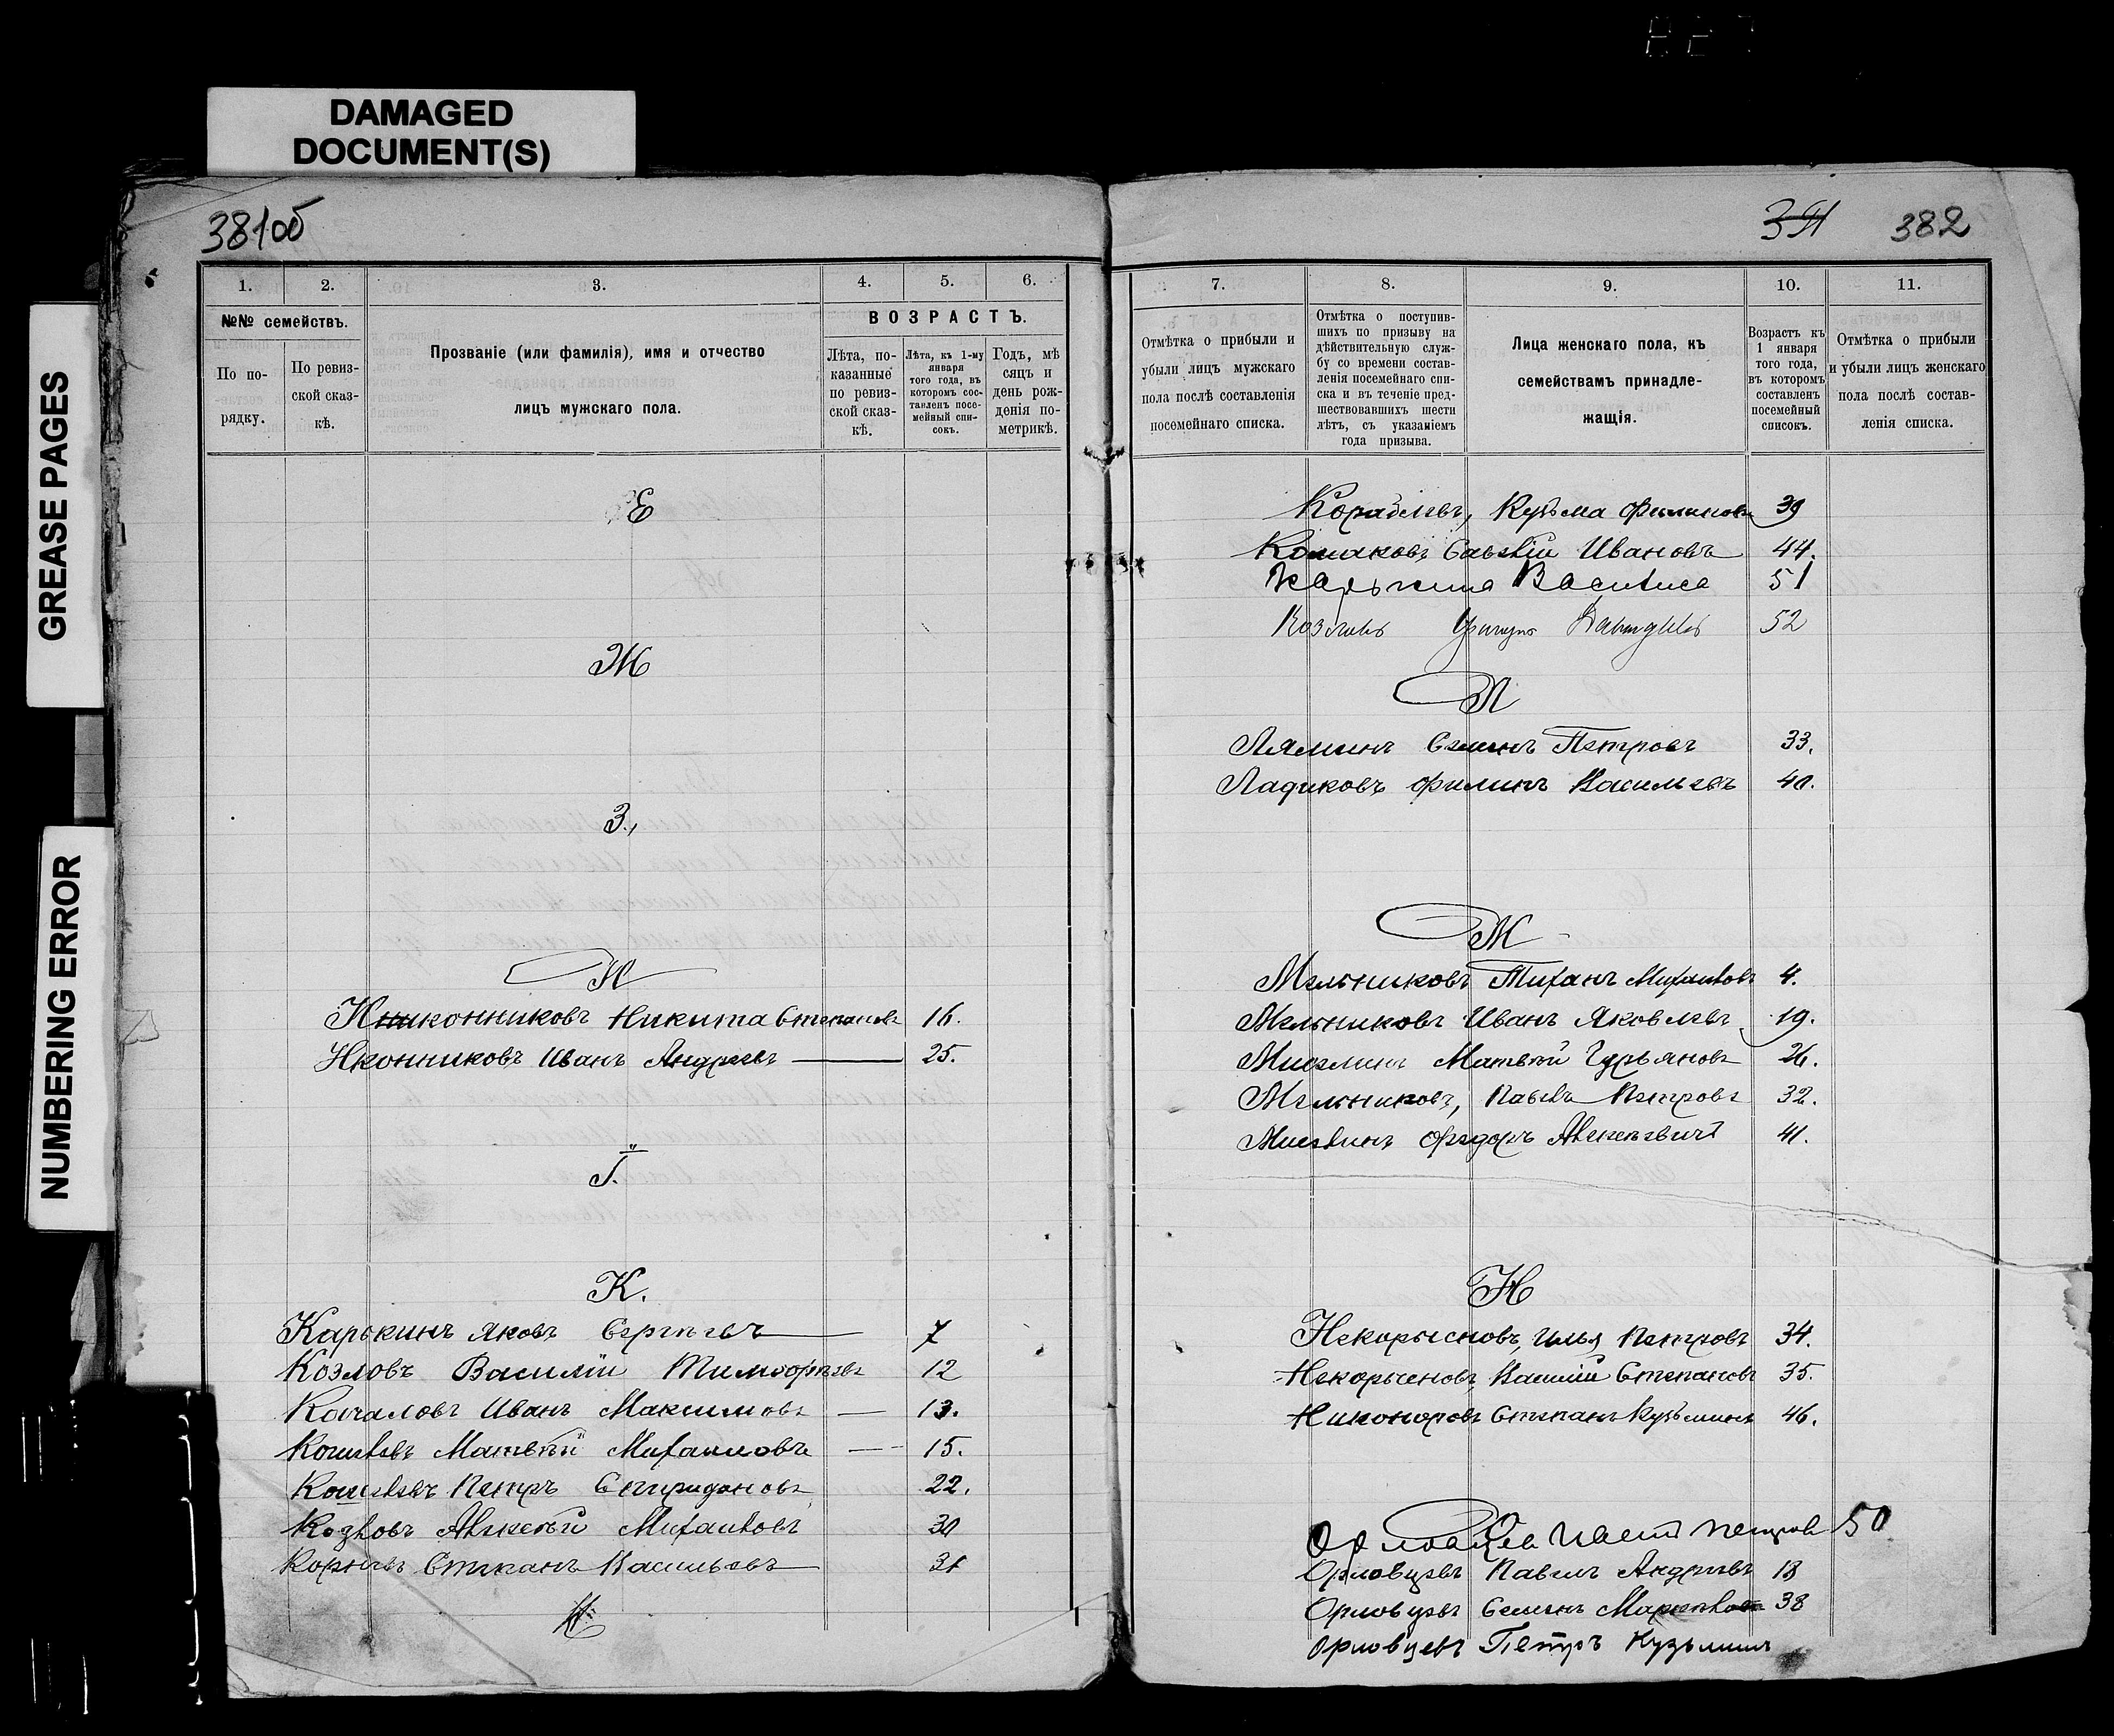 DAMAGED
DOCUMENT(S)
GREASE PAGES
NUMBERING ERROR
381об
1. 2. 3. 4. 5. 6.
№№ семействъ.
ВОЗРАСТЪ.
По по-
рядку.
По ревиз-
ской сказ-
кѣ.
Прозваніе (или фамилія), имя и отчество
лицъ мужскаго пола.
Лѣта, по-
казанные
по ревиз-
ской сказ-
кѣ.
Лѣта, къ 1-му
января
того года, въ
которомъ сос-
тавленъ посе-
мейный спи-
сокъ.
Годъ, мѣ
сяцъ и
день рож-
денія по-
метрикѣ.
Е
Ж
З.
И
Иконниковъ Никита Степановъ 16.
Иконниковъ Иванъ Андреевъ 25.
Ї.
К.
Карькинъ Яковъ Сергѣевъ 7
Козловъ Василій Тимофѣевъ 12
Качаловъ Иванъ Максимовъ 13.
Кошелевъ Матвѣй Михаиловъ 15.
Кошелевъ Петръ Спиридоновъ 22.
Козловъ Алексѣй Михаиловъ 30
Степанъ Васильевъ 31
382
7. 8. 9. 10. 11.
Отмѣтка о прибыли и
убыли лицъ мужскаго
пола послѣ составленія
посемейнаго списка.
Отмѣтка о поступив-
шихъ по призыву на
дѣйствительную служ-
бу со времени состав-
ленія посемейнаго спи-
ска и въ теченіе пред-
шествовавшихъ шести
лѣтъ, съ указаніемъ
года призыва.
Лица женскаго пола, къ
семействамъ принадле-
жащія.
Возрастъ къ
1 января
того года,
въ которомъ
составленъ
посемейный
списокъ.
Отмѣтка о прибыли
и убыли лицъ женскаго
пола послѣ состав-
ленія списка.
Кораблевъ, Кузьма Филиповъ 39
Савелій Ивановъ 44.
Карькина Василиса 51
Козловъ Давыдовъ 52
Л
Ляминъ Семенъ Петровъ 33.
Ладиковъ Филипъ Васильевъ 40.
М
Мельниковъ Тифанъ Михаиловъ 4.
Мельниковъ Иванъ Яковлевъ 19.
Матвѣй Гурьяновъ 26.
Мельниковъ, Павелъ Петровъ 32.
Федоръ Алексѣевичъ 41.
Н
Некорысновъ, Илья Петровъ 34.
Некорысновъ, Василій Степановъ 35.
Никоноровъ Степанъ Кузьминъ 46.
О
Орловцев Петров 50
Орловцевъ Павелъ Андреевъ 18
Орловцевъ Семенъ 38
Орловцевъ Петръ Кузьминъ